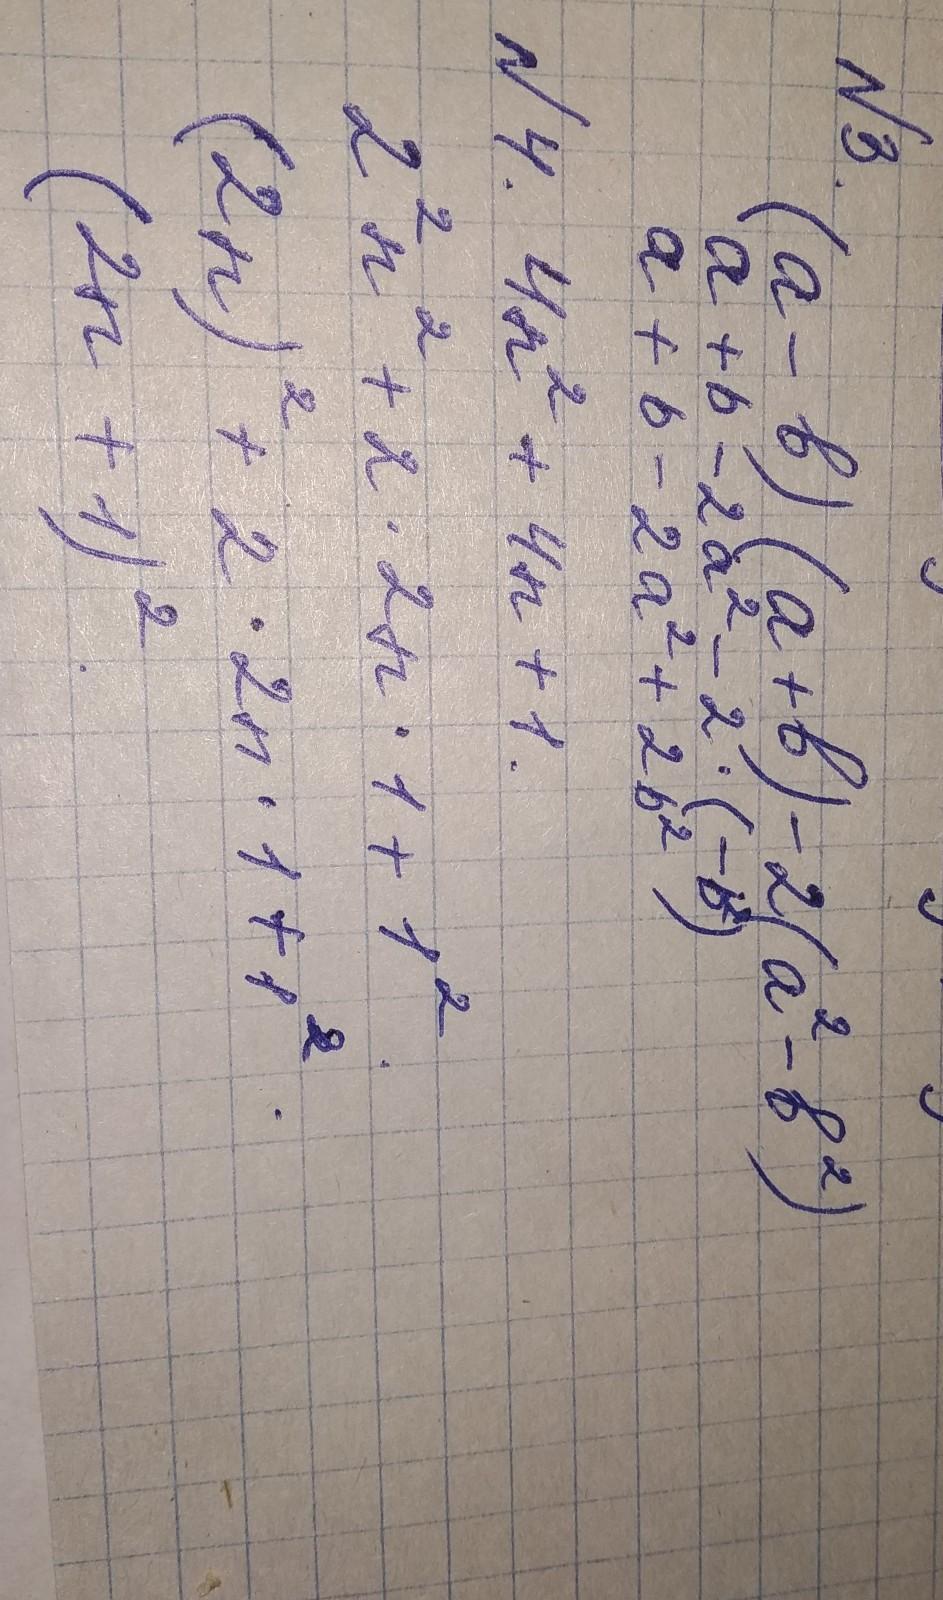 N3. (a - b)(a + b) - 2(a² - b²)
a + b - 2a² - 2 · (-b²)
a + b - 2a² + 2b²)
N4. 4n² + 4n + 1.
2²n² + 2 · 2n · 1 + 1².
(2n)² + 2 · 2n · 1 + 1².
(2n + 1)².